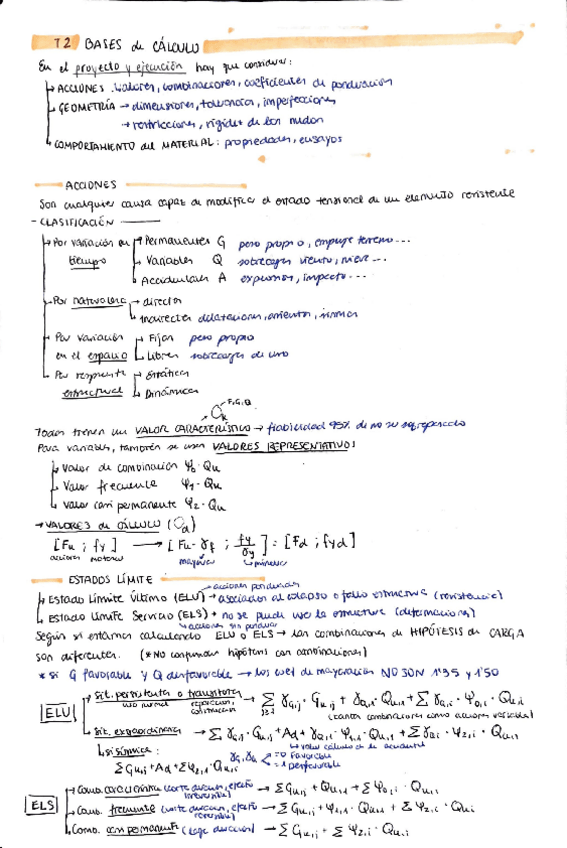 T2 BASES de CÁLCULO
En el proyecto y ejecución hay que considerar:
↳ ACCIONES: valores, combinaciones, coeficientes de ponderación
↳ GEOMETRÍA → dimensiones, tolerancias, imperfecciones
→ restricciones, rigidez de los nudos
↳ COMPORTAMIENTO del MATERIAL: propiedades, ensayos
ACCIONES
Son cualquier causa capaz de modificar el estado tensional de un elemento resistente
- CLASIFICACIÓN
↳ Por variación en tiempo → Permanentes G peso propio, empuje terreno...
→ Variables Q sobrecargas viento, nieve...
→ Accidentales A explosiones, impacto...
↳ Por naturaleza → directas
→ Indirectas dilataciones, asientos, sismos
↳ Por variación en el espacio → Fijas peso propio
→ Libres sobrecargas de uso
↳ Por respuesta estructural → Estáticas
→ Dinámicas
F, G, Q
Todas tienen un VALOR CARACTERÍSTICO → fiabilidad 95% de no ser sobrepasado
Para variables, también se usan VALORES REPRESENTATIVOS
↳ Valor de combinación Ψ₀·Qk
↳ Valor frecuente Ψ₁·Qk
↳ Valor casi permanente Ψ₂·Qk
→ VALORES de CÁLCULO (□d)
[Fk ; fy] → [Fk·γf ; fy/γy] = [Fd ; fyd]
acciones material mayora minora
ESTADOS LÍMITE
↳ Estado Límite Último (ELU) → asociados al colapso o fallo estructura (resistencia)
acciones ponderadas
↳ Estado Límite Servicio (ELS) → no se puede usar la estructura (deformaciones)
acciones sin ponderar
Según si estamos calculando ELU o ELS → las combinaciones de HIPÓTESIS de CARGA
son diferentes. (*No confundir hipótesis con combinaciones)
* si G favorable y Q desfavorable → los coef de mayoración NO SON 1'35 y 1'50
ELU
Sit. persistentes o transitorias → Σ γG,j · Gk,j + γQ,1 · Qk,1 + Σ γQ,i · Ψ0,i · Qk,i
uso normal reparación, construcción
(tantas combinaciones como acciones variables)
Sit. extraordinarias → Σ γG,j · Gk,j + Ad + γQ,1 · Ψ1,1 · Qk,1 + Σ γQ,i · Ψ2,i · Qk,i
valor cálculo de la accidental
↳ si sísmica: γG, γQ =0 favorable
=1 desfavorable
ΣGk,j + Ad + ΣΨ2,i · Qk,i
ELS
Comb. característica (corta duración, efecto irreversible) → Σ Gk,j + Qk,1 + Σ Ψ0,i · Qk,i
Comb. frecuente (corta duración, efecto reversible) → Σ Gk,j + Ψ1,1 · Qk,1 + Σ Ψ2,i · Qk,i
Comb. casi permanente (larga duración) → Σ Gk,j + Σ Ψ2,i · Qk,i